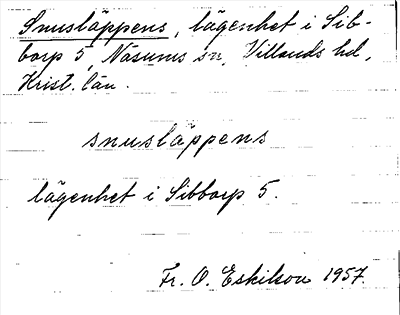 Snusläppens, lägenhet i Sib-
borp 5, Näsums sn, Villands hd,
Krist. län.
snusläppens
lägenhet i Sibborp 5.
Fr. O. Eskilson 1957.